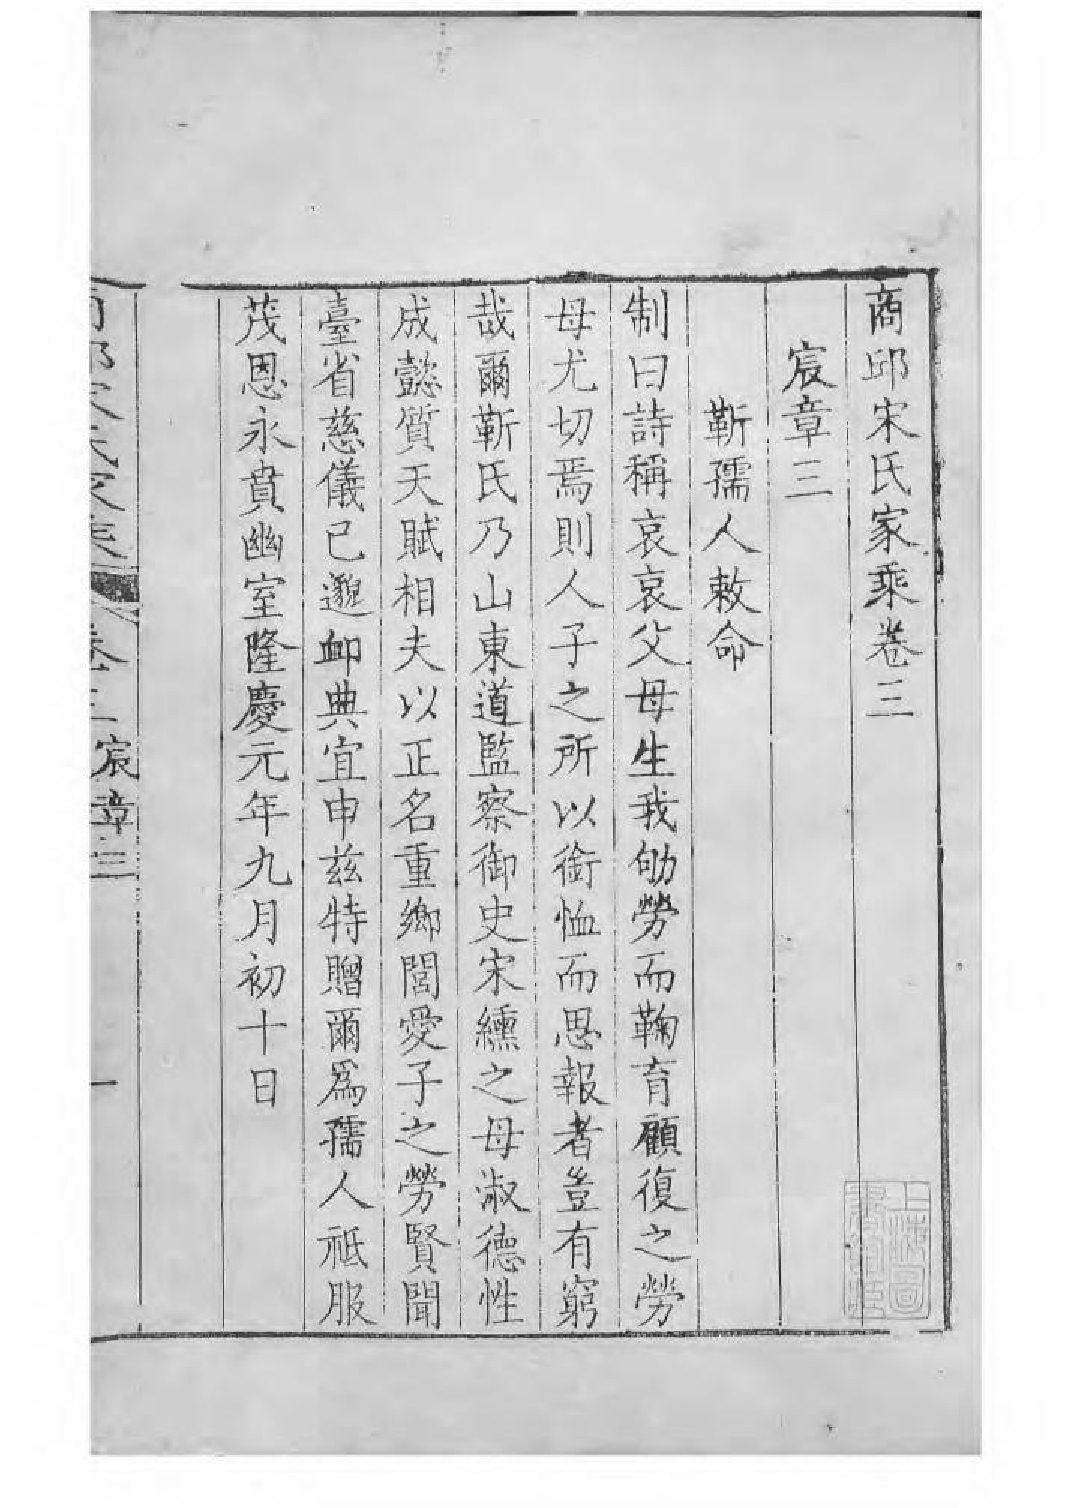 商邱宋氏家乘卷三
宸章三
靳孺人敕命
制曰詩稱哀哀父母生我劬勞而鞠育顧復之勞
母尤切焉則人子之所以銜恤而思報者豈有窮
哉爾靳氏乃山東道監察御史宋纁之母淑德性
成懿質天賦相夫以正名重鄉閭愛子之勞賢聞
臺省慈儀已邈卹典宜申兹特贈爾爲孺人祗服
茂恩永賁幽室隆慶元年九月初十日
商邱宋氏家乘 卷三宸章三 一
上海圖書館藏